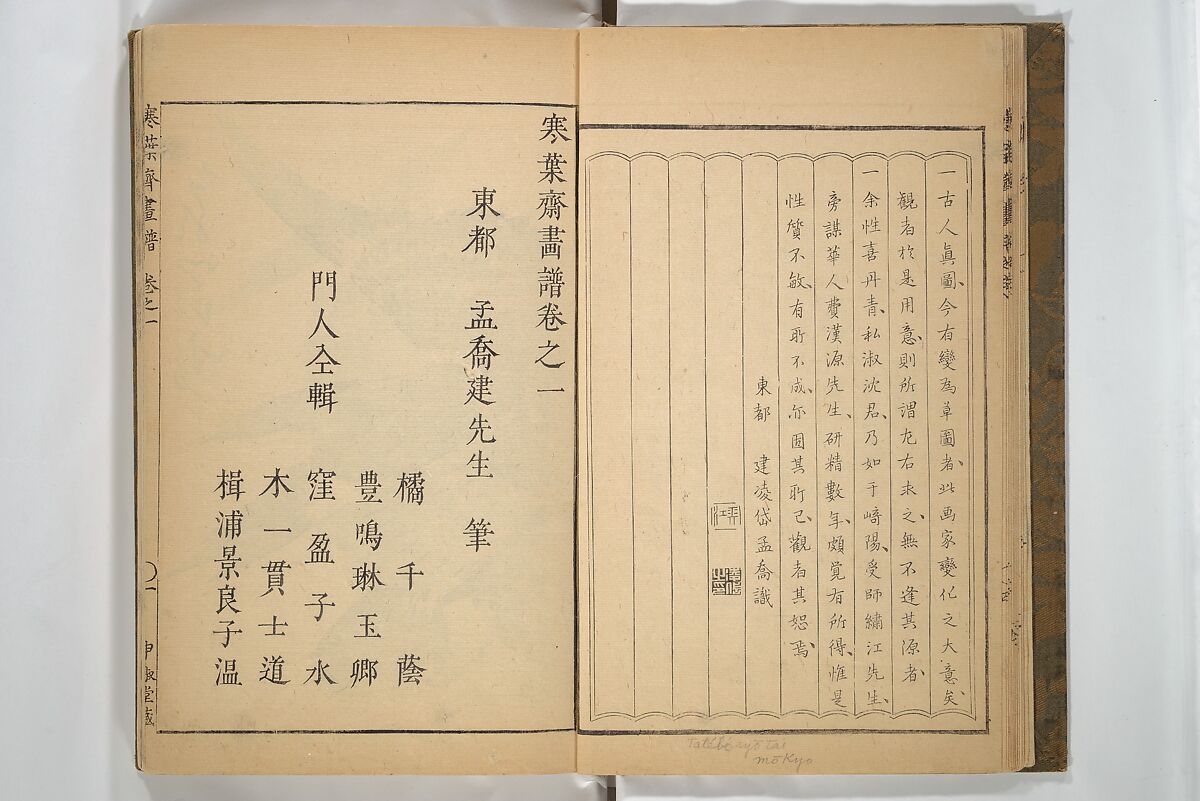 一古人眞圖今有變為草圖者此画家變化之大意矣
觀者於是用意則所謂左右求之無不逢其源者
一余性喜丹青私淑沈君乃如于﨑陽受師繡江先生
旁謀華人費漢源先生研精數年頗覺有所得惟是
性質不敏有所不成亦固其所已觀者其恕焉
東都 建凌岱孟喬識
寒葉齋畫譜卷之一
東都 孟喬建先生 筆
門人仝輯
橘千蔭
豊鳴琳玉卿
窪盈子水
木一貫士道
楫浦景良子温
寒葉齋畫譜 卷之一
〇一
Tatébé ryō tai
mō Kyo